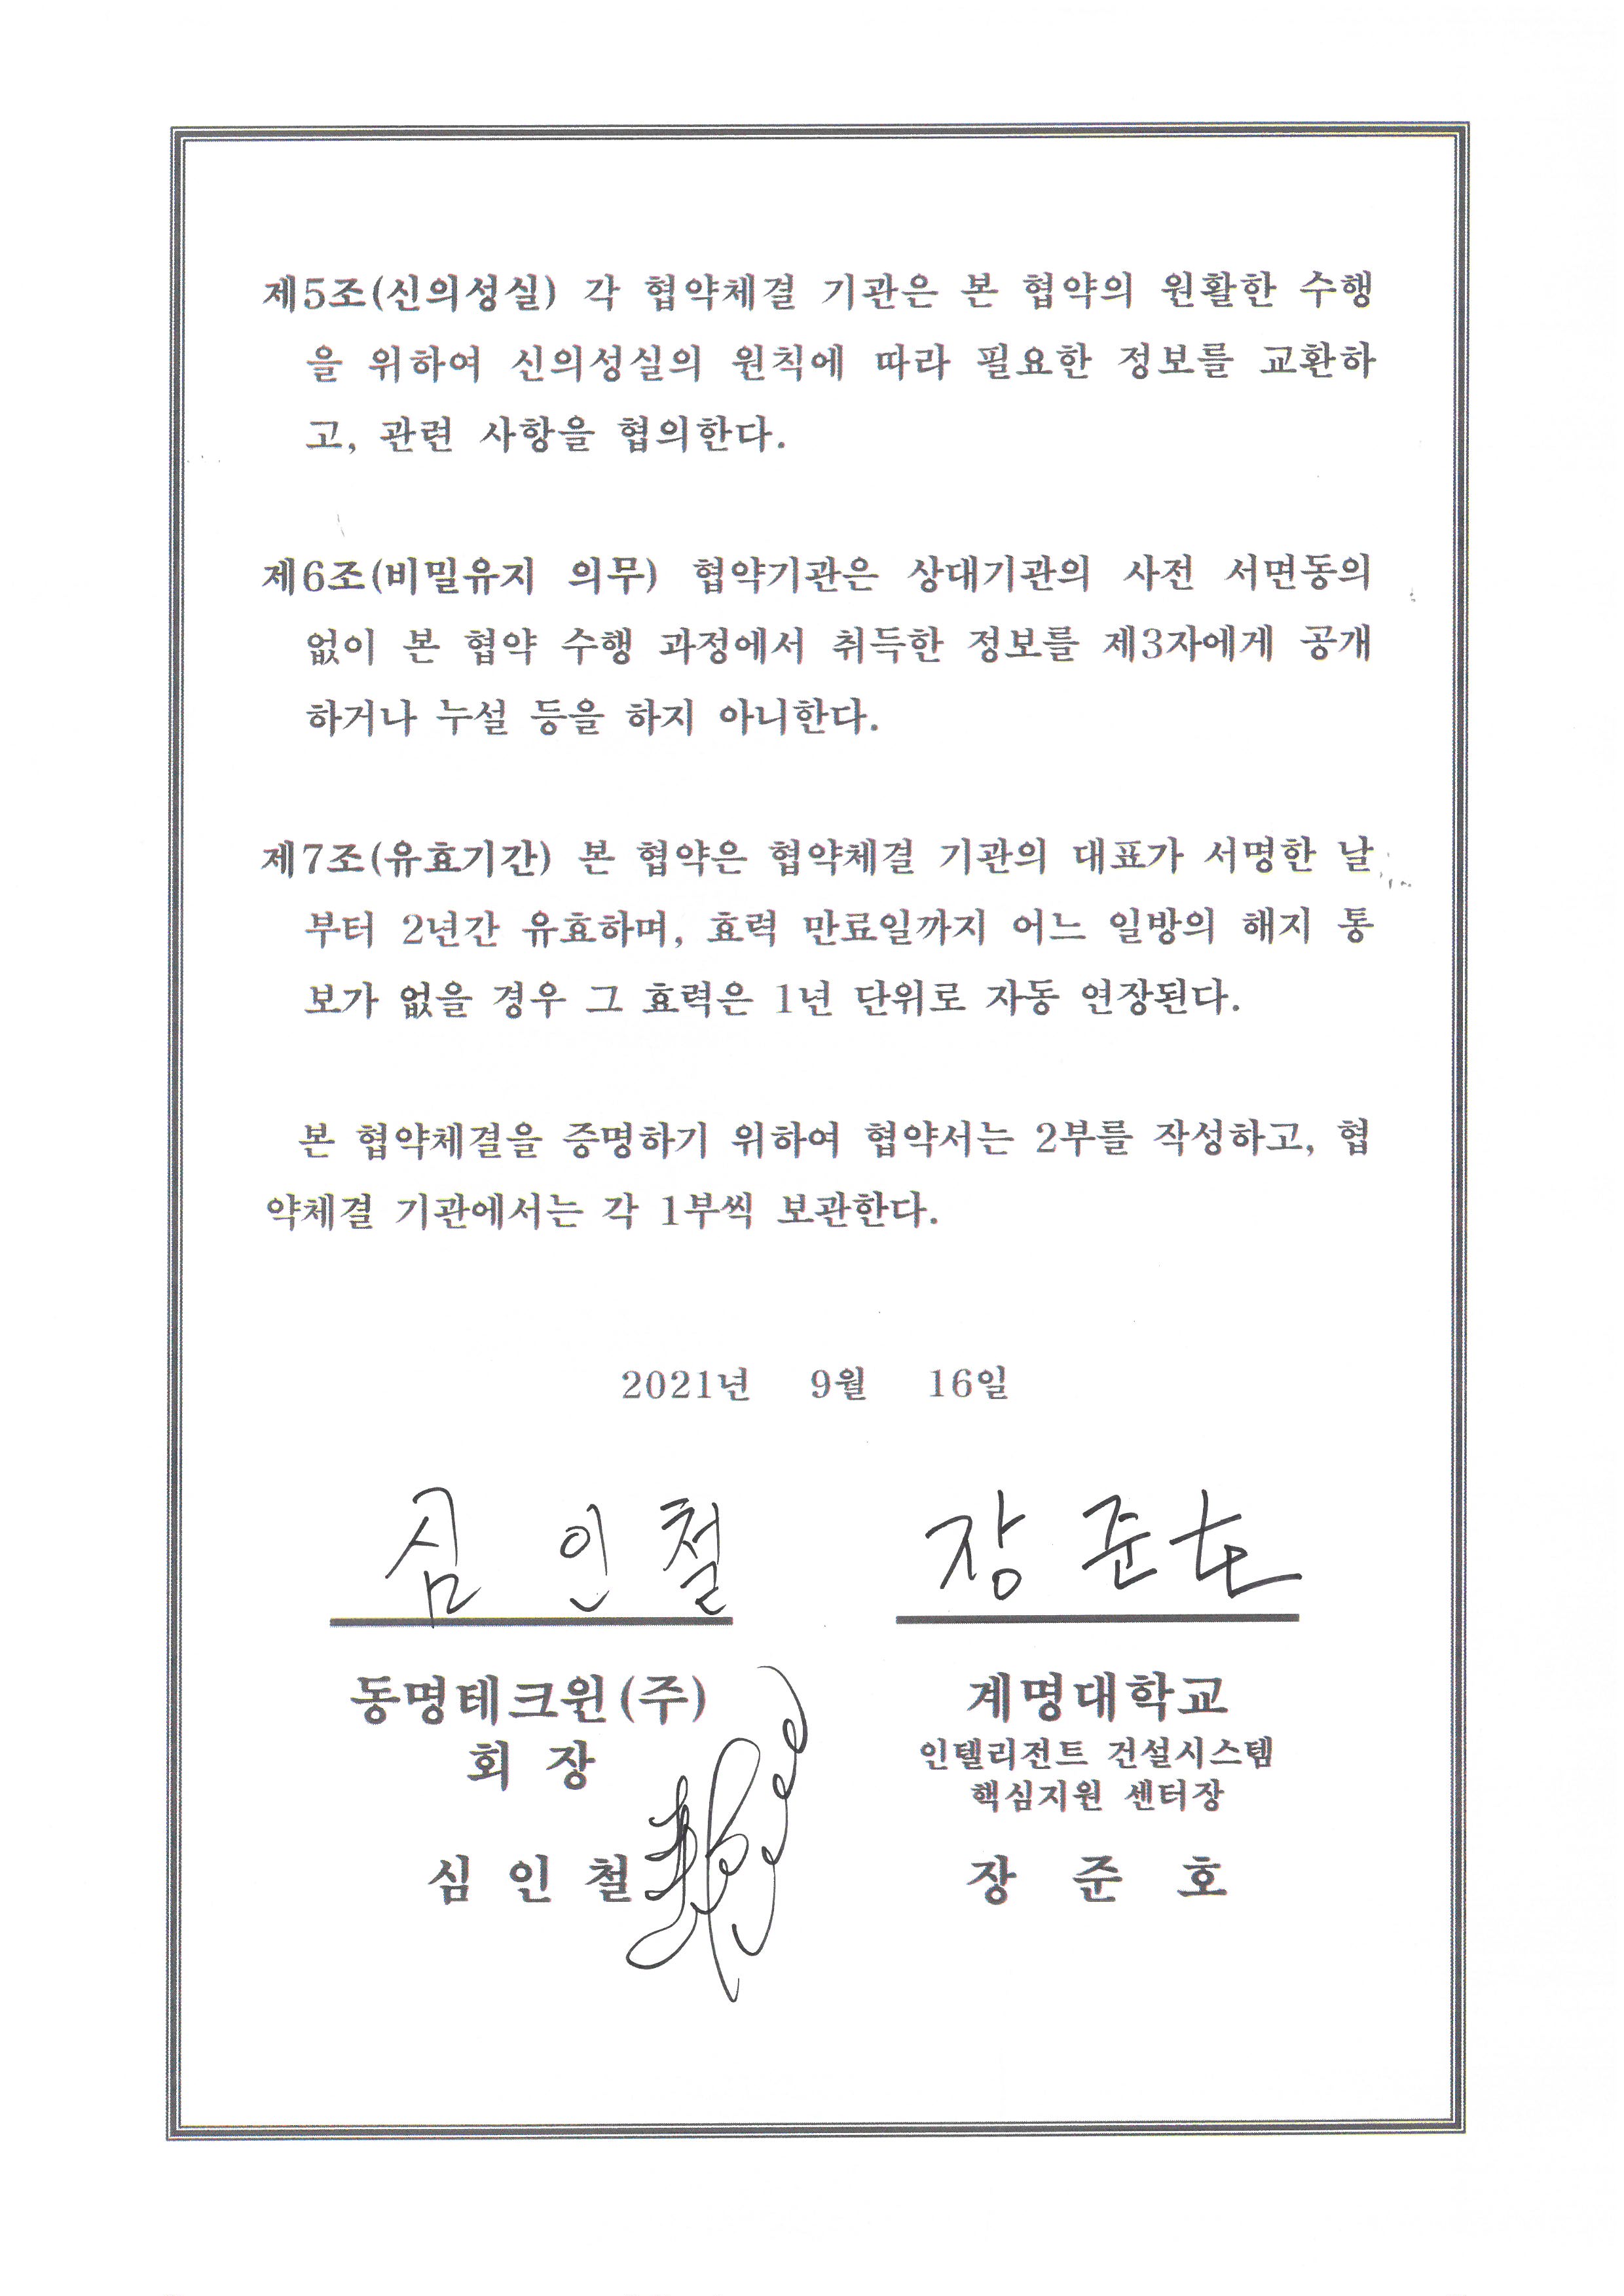 제5조(신의성실) 각 협약체결 기관은 본 협약의 원활한 수행
을 위하여 신의성실의 원칙에 따라 필요한 정보를 교환하
고, 관련 사항을 협의한다.
제6조(비밀유지 의무) 협약기관은 상대기관의 사전 서면동의
없이 본 협약 수행 과정에서 취득한 정보를 제3자에게 공개
하거나 누설 등을 하지 아니한다.
제7조(유효기간) 본 협약은 협약체결 기관의 대표가 서명한 날
부터 2년간 유효하며, 효력 만료일까지 어느 일방의 해지 통
보가 없을 경우 그 효력은 1년 단위로 자동 연장된다.
본 협약체결을 증명하기 위하여 협약서는 2부를 작성하고, 협
약체결 기관에서는 각 1부씩 보관한다.
2021년 9월 16일
심 인 철
동명테크윈(주)
회 장
심 인 철
장 준 호
계명대학교
인텔리전트 건설시스템
핵심지원 센터장
장 준 호